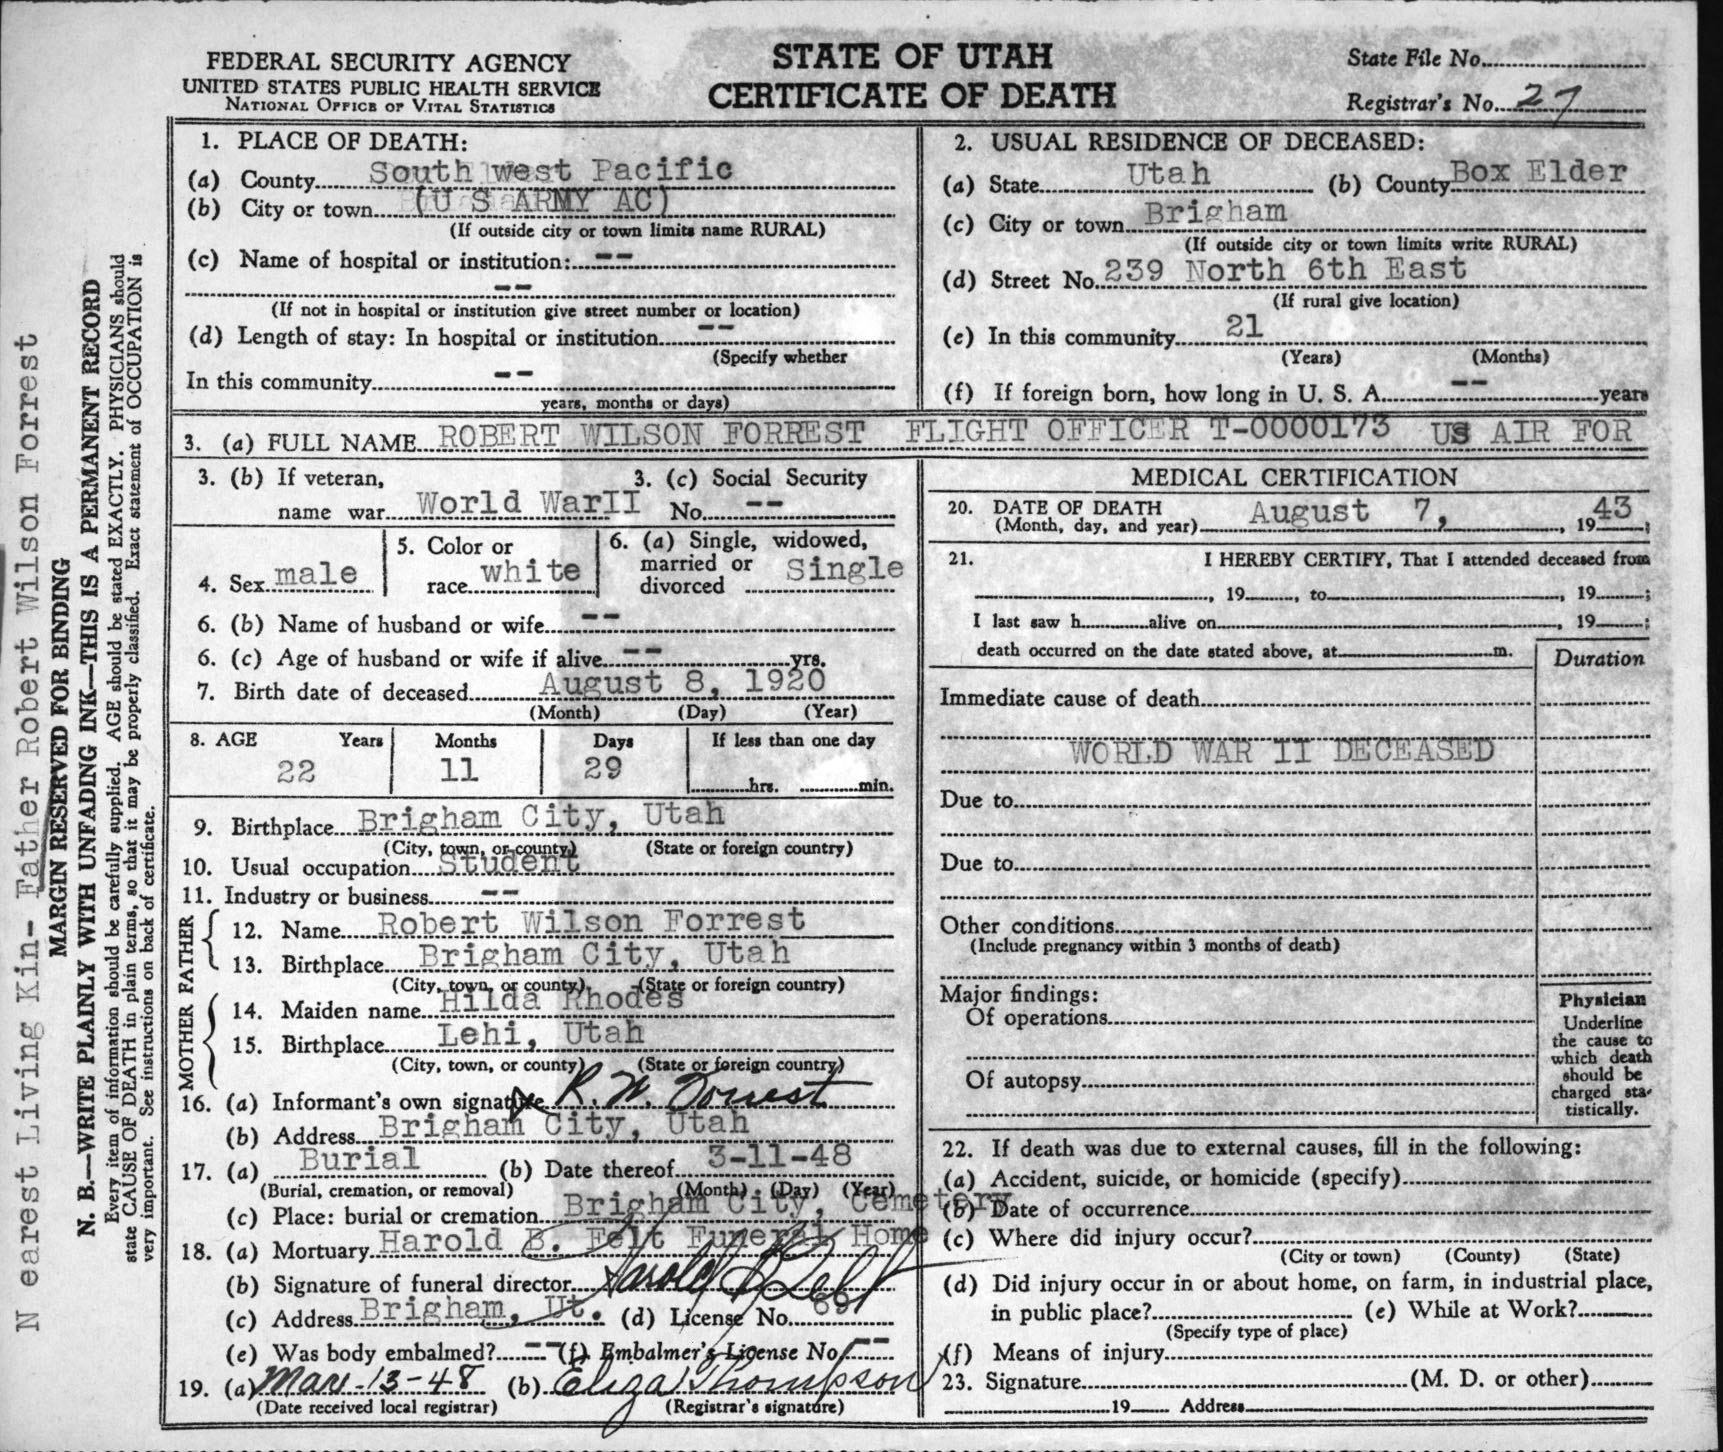 FEDERAL SECURITY AGENCY
UNITED STATES PUBLIC HEALTH SERVICE
NATIONAL OFFICE OF VITAL STATISTICS
STATE OF UTAH
CERTIFICATE OF DEATH
State File No.
Registrar's No. 27
1. PLACE OF DEATH:
(a) County South west Pacific
(b) City or town (U S ARMY AC)
(If outside city or town limits name RURAL)
(c) Name of hospital or institution: --
--
(If not in hospital or institution give street number or location)
(d) Length of stay: In hospital or institution --
(Specify whether
In this community --
years, months or days)
2. USUAL RESIDENCE OF DECEASED:
(a) State Utah (b) County Box Elder
(c) City or town Brigham
(If outside city or town limits write RURAL)
(d) Street No. 239 North 6th East
(If rural give location)
(e) In this community 21
(Years) (Months)
(f) If foreign born, how long in U. S. A. -- years
3. (a) FULL NAME ROBERT WILSON FORREST FLIGHT OFFICER T-0000173 US AIR FOR
3. (b) If veteran,
name war World WarII
3. (c) Social Security
No. --
4. Sex male
5. Color or
race white
6. (a) Single, widowed,
married or
divorced Single
6. (b) Name of husband or wife --
6. (c) Age of husband or wife if alive -- yrs.
7. Birth date of deceased August 8, 1920
(Month) (Day) (Year)
8. AGE Years Months Days If less than one day
22 11 29 hrs. min.
9. Birthplace Brigham City, Utah
(City, town, or county) (State or foreign country)
10. Usual occupation Student
11. Industry or business --
FATHER
12. Name Robert Wilson Forrest
13. Birthplace Brigham City, Utah
(City, town, or county) (State or foreign country)
MOTHER
14. Maiden name Hilda Rhodes
15. Birthplace Lehi, Utah
(City, town, or county) (State or foreign country)
16. (a) Informant's own signature R. W. Forrest
(b) Address Brigham City, Utah
17. (a) Burial (b) Date thereof 3-11-48
(Burial, cremation, or removal) (Month) (Day) (Year)
(c) Place: burial or cremation Brigham City, Cemetery
18. (a) Mortuary Harold B. Felt Funeral Home
(b) Signature of funeral director Harold B Felt
(c) Address Brigham, Ut. (d) License No. 691
(e) Was body embalmed? -- (f) Embalmer's License No. --
19. (a) Mar-13-48 (b) Eliza Thompson
(Date received local registrar) (Registrar's signature)
MEDICAL CERTIFICATION
20. DATE OF DEATH
(Month, day, and year) August 7, , 1943;
21. I HEREBY CERTIFY, That I attended deceased from
, 19 , to , 19 ;
I last saw h alive on , 19 ;
death occurred on the date stated above, at m.
Duration
Immediate cause of death
WORLD WAR II DECEASED
Due to
Due to
Other conditions
(Include pregnancy within 3 months of death)
Major findings:
Of operations
Of autopsy
Physician
Underline
the cause to
which death
should be
charged sta-
tistically.
22. If death was due to external causes, fill in the following:
(a) Accident, suicide, or homicide (specify)
(b) Date of occurrence
(c) Where did injury occur?
(City or town) (County) (State)
(d) Did injury occur in or about home, on farm, in industrial place,
in public place? (e) While at Work?
(Specify type of place)
(f) Means of injury
23. Signature (M. D. or other)
19 Address
N earest Living Kin- Father Robert Wilson Forrest
MARGIN RESERVED FOR BINDING
N. B.—WRITE PLAINLY WITH UNFADING INK—THIS IS A PERMANENT RECORD
Every item of information should be carefully supplied. AGE should be stated EXACTLY. PHYSICIANS should
state CAUSE OF DEATH in plain terms, so that it may be properly classified. Exact statement of OCCUPATION is
very important. See instructions on back of certificate.